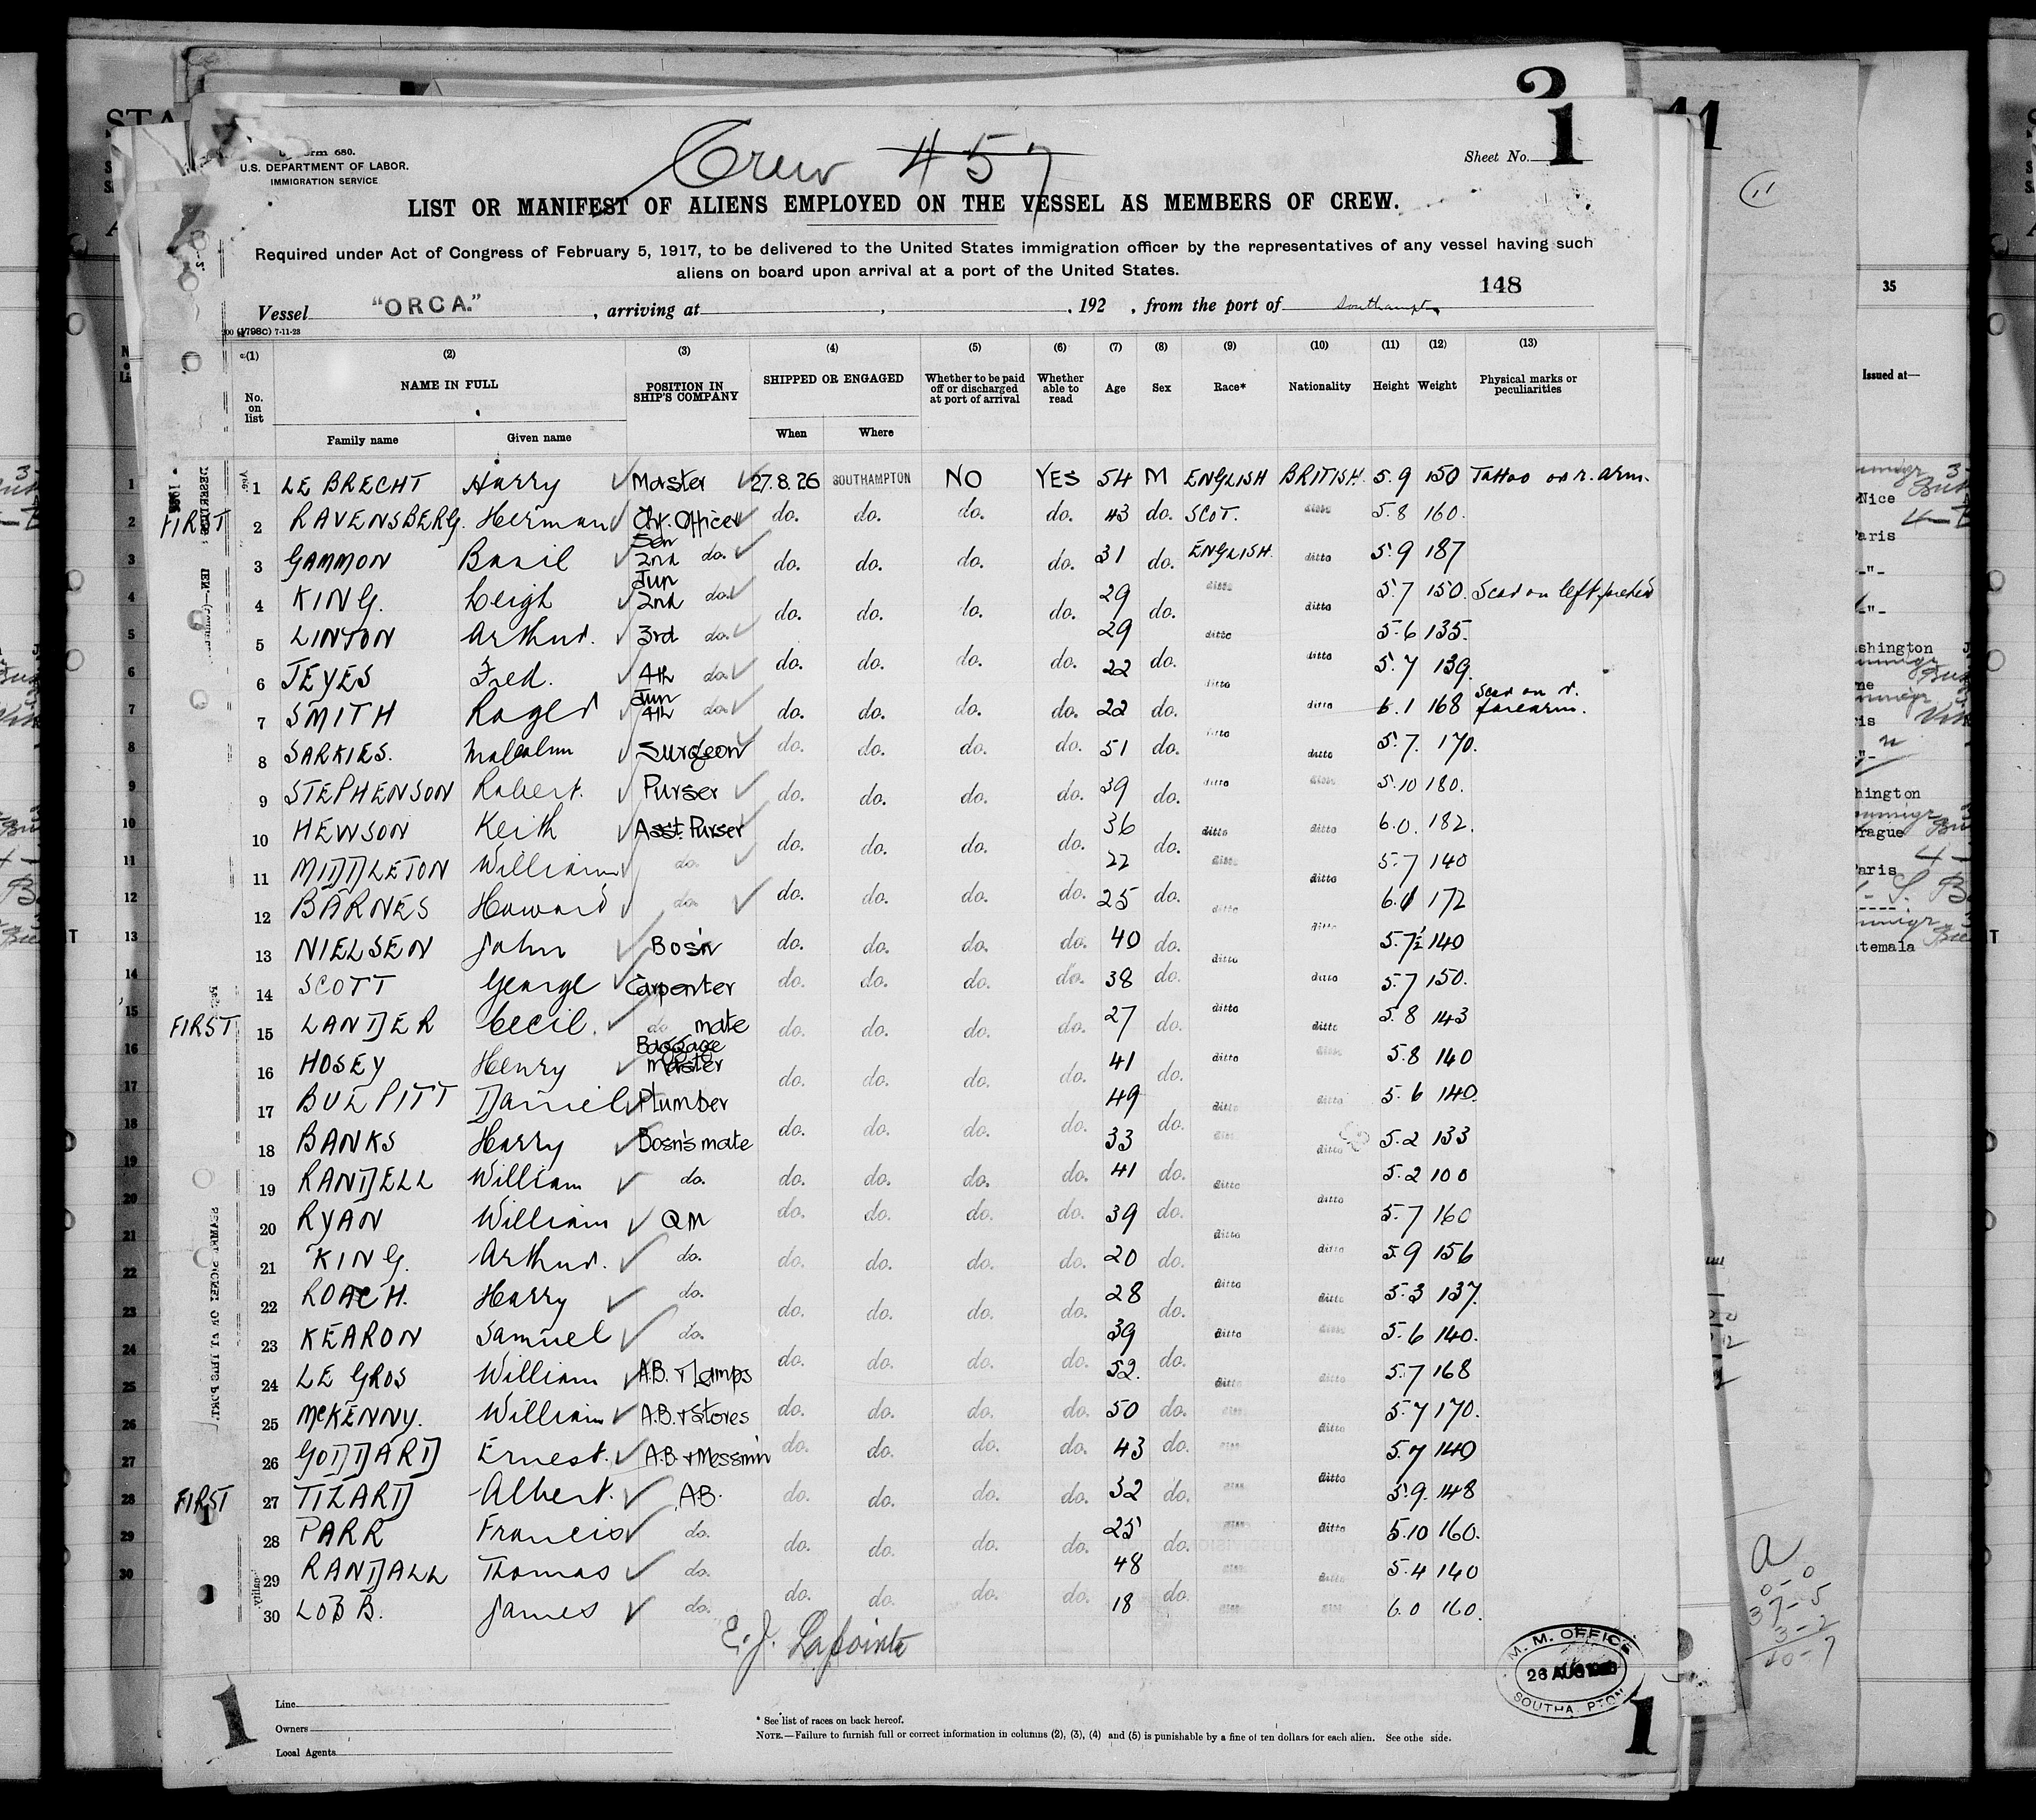 2
1
U.S. DEPARTMENT OF LABOR.
IMMIGRATION SERVICE
Crew 457
Sheet No. 1
LIST OR MANIFEST OF ALIENS EMPLOYED ON THE VESSEL AS MEMBERS OF CREW.
Required under Act of Congress of February 5, 1917, to be delivered to the United States immigration officer by the representatives of any vessel having such
aliens on board upon arrival at a port of the United States.
148
Vessel "ORCA." , arriving at , 192 , from the port of Southampton
(1) (2) (3) (4) (5) (6) (7) (8) (9) (10) (11) (12) (13)
No. on list NAME IN FULL POSITION IN SHIP'S COMPANY SHIPPED OR ENGAGED Whether to be paid off or discharged at port of arrival Whether able to read Age Sex Race* Nationality Height Weight Physical marks or peculiarities
Family name Given name When Where
1 LE BRECHT Harry Master 27.8.26 SOUTHAMPTON NO YES 54 M ENGLISH BRITISH 5.9 150 Tattoo on r. arm.
FIRST 2 RAVENSBERG. Herman Chf. Officer do. do. do. do. 43 do. SCOT. ditto 5.8 160.
3 GAMMON Basil Sen 2nd do. do. do. do. do. 31 do. ENGLISH. ditto 5.9 187
4 KING. Leigh Jun 2nd do. do. do. do. do. 29 do. ditto ditto 5.7 150. Scar on left forehead
5 LINTON Arthur. 3rd do. do. do. do. do. 29 do. ditto ditto 5.6 135.
6 JEYES Fred. 4th do. do. do. do. do. 22 do. ditto ditto 5.7 139.
7 SMITH Roger Jun 4th do. do. do. do. do. 22 do. ditto ditto 6.1 168 Scar on r. forearm.
8 SARKIES. Malcolm Surgeon do. do. do. do. 51 do. ditto ditto 5.7. 170.
9 STEPHENSON Robert. Purser do. do. do. do. 39 do. ditto ditto 5.10 180.
10 HEWSON Keith Asst Purser do. do. do. do. 36 do. ditto ditto 6.0. 182.
11 MIDDLETON William do. 22 ditto ditto 5.7 140
12 BARNES Howard do. do. do. do. do. 25 do. ditto ditto 6.1 172
13 NIELSEN John Bosn do. do. do. do. 40 do. ditto 5.7½ 140
14 SCOTT George Carpenter do. do. do. do. 38 do. ditto ditto 5.7 150.
FIRST 15 LANDER Cecil. do mate do. do. do. do. 27 do. ditto 5.8 143
16 HOSEY Henry Baggage Master do. do. do. do. 41 do. ditto ditto 5.8 140
17 BULPITT Daniel Plumber 49 ditto ditto 5.6 140.
18 BANKS Harry Bosn's mate do. do. do. do. 33 do. ditto ditto 5.2 133
19 RANDELL William do. do. do. do. do. 41 do. ditto ditto 5.2 100
20 RYAN William QM do. do. do. do. 39 do. ditto 5.7 160
21 KING. Arthur. do. do. do. do. do. 20 do. ditto 5.9 156
22 ROACH. Harry do. do. do. do. do. 28 do. ditto ditto 5.3 137.
23 KEARON Samuel do. 39 ditto ditto 5.6 140.
24 LE GROS William A.B. + Lamps do. do. do. do. 52. do. ditto ditto 5.7 168
25 McKENNY. William A.B. + Stores do. do. do. do. 50 do. ditto ditto 5.7 170.
26 GODDARD Ernest. A.B. + Messmn do. do. do. do. 43 do. ditto 5.7 140
FIRST 27 TILARD Albert. AB. do. do. do. do. 32 do. ditto ditto 5.9. 148
28 PARR Francis do. do. do. do. do. 25 do. ditto ditto 5.10 160.
29 RANDALL Thomas do. 48 ditto ditto 5.4 140
30 LOBB. James do. do. do. do. do. 18 do. ditto ditto 6.0 160.
E. J. Lapointe
M. M. OFFICE
26 AUG 1926
SOUTHAMPTON
1
Line
Owners
Local Agents
* See list of races on back hereof.
NOTE.—Failure to furnish full or correct information in columns (2), (3), (4) and (5) is punishable by a fine of ten dollars for each alien. See othe side.
1
35
Issued at—
Nice
Paris
Washington
Prague
Paris
Guatemala